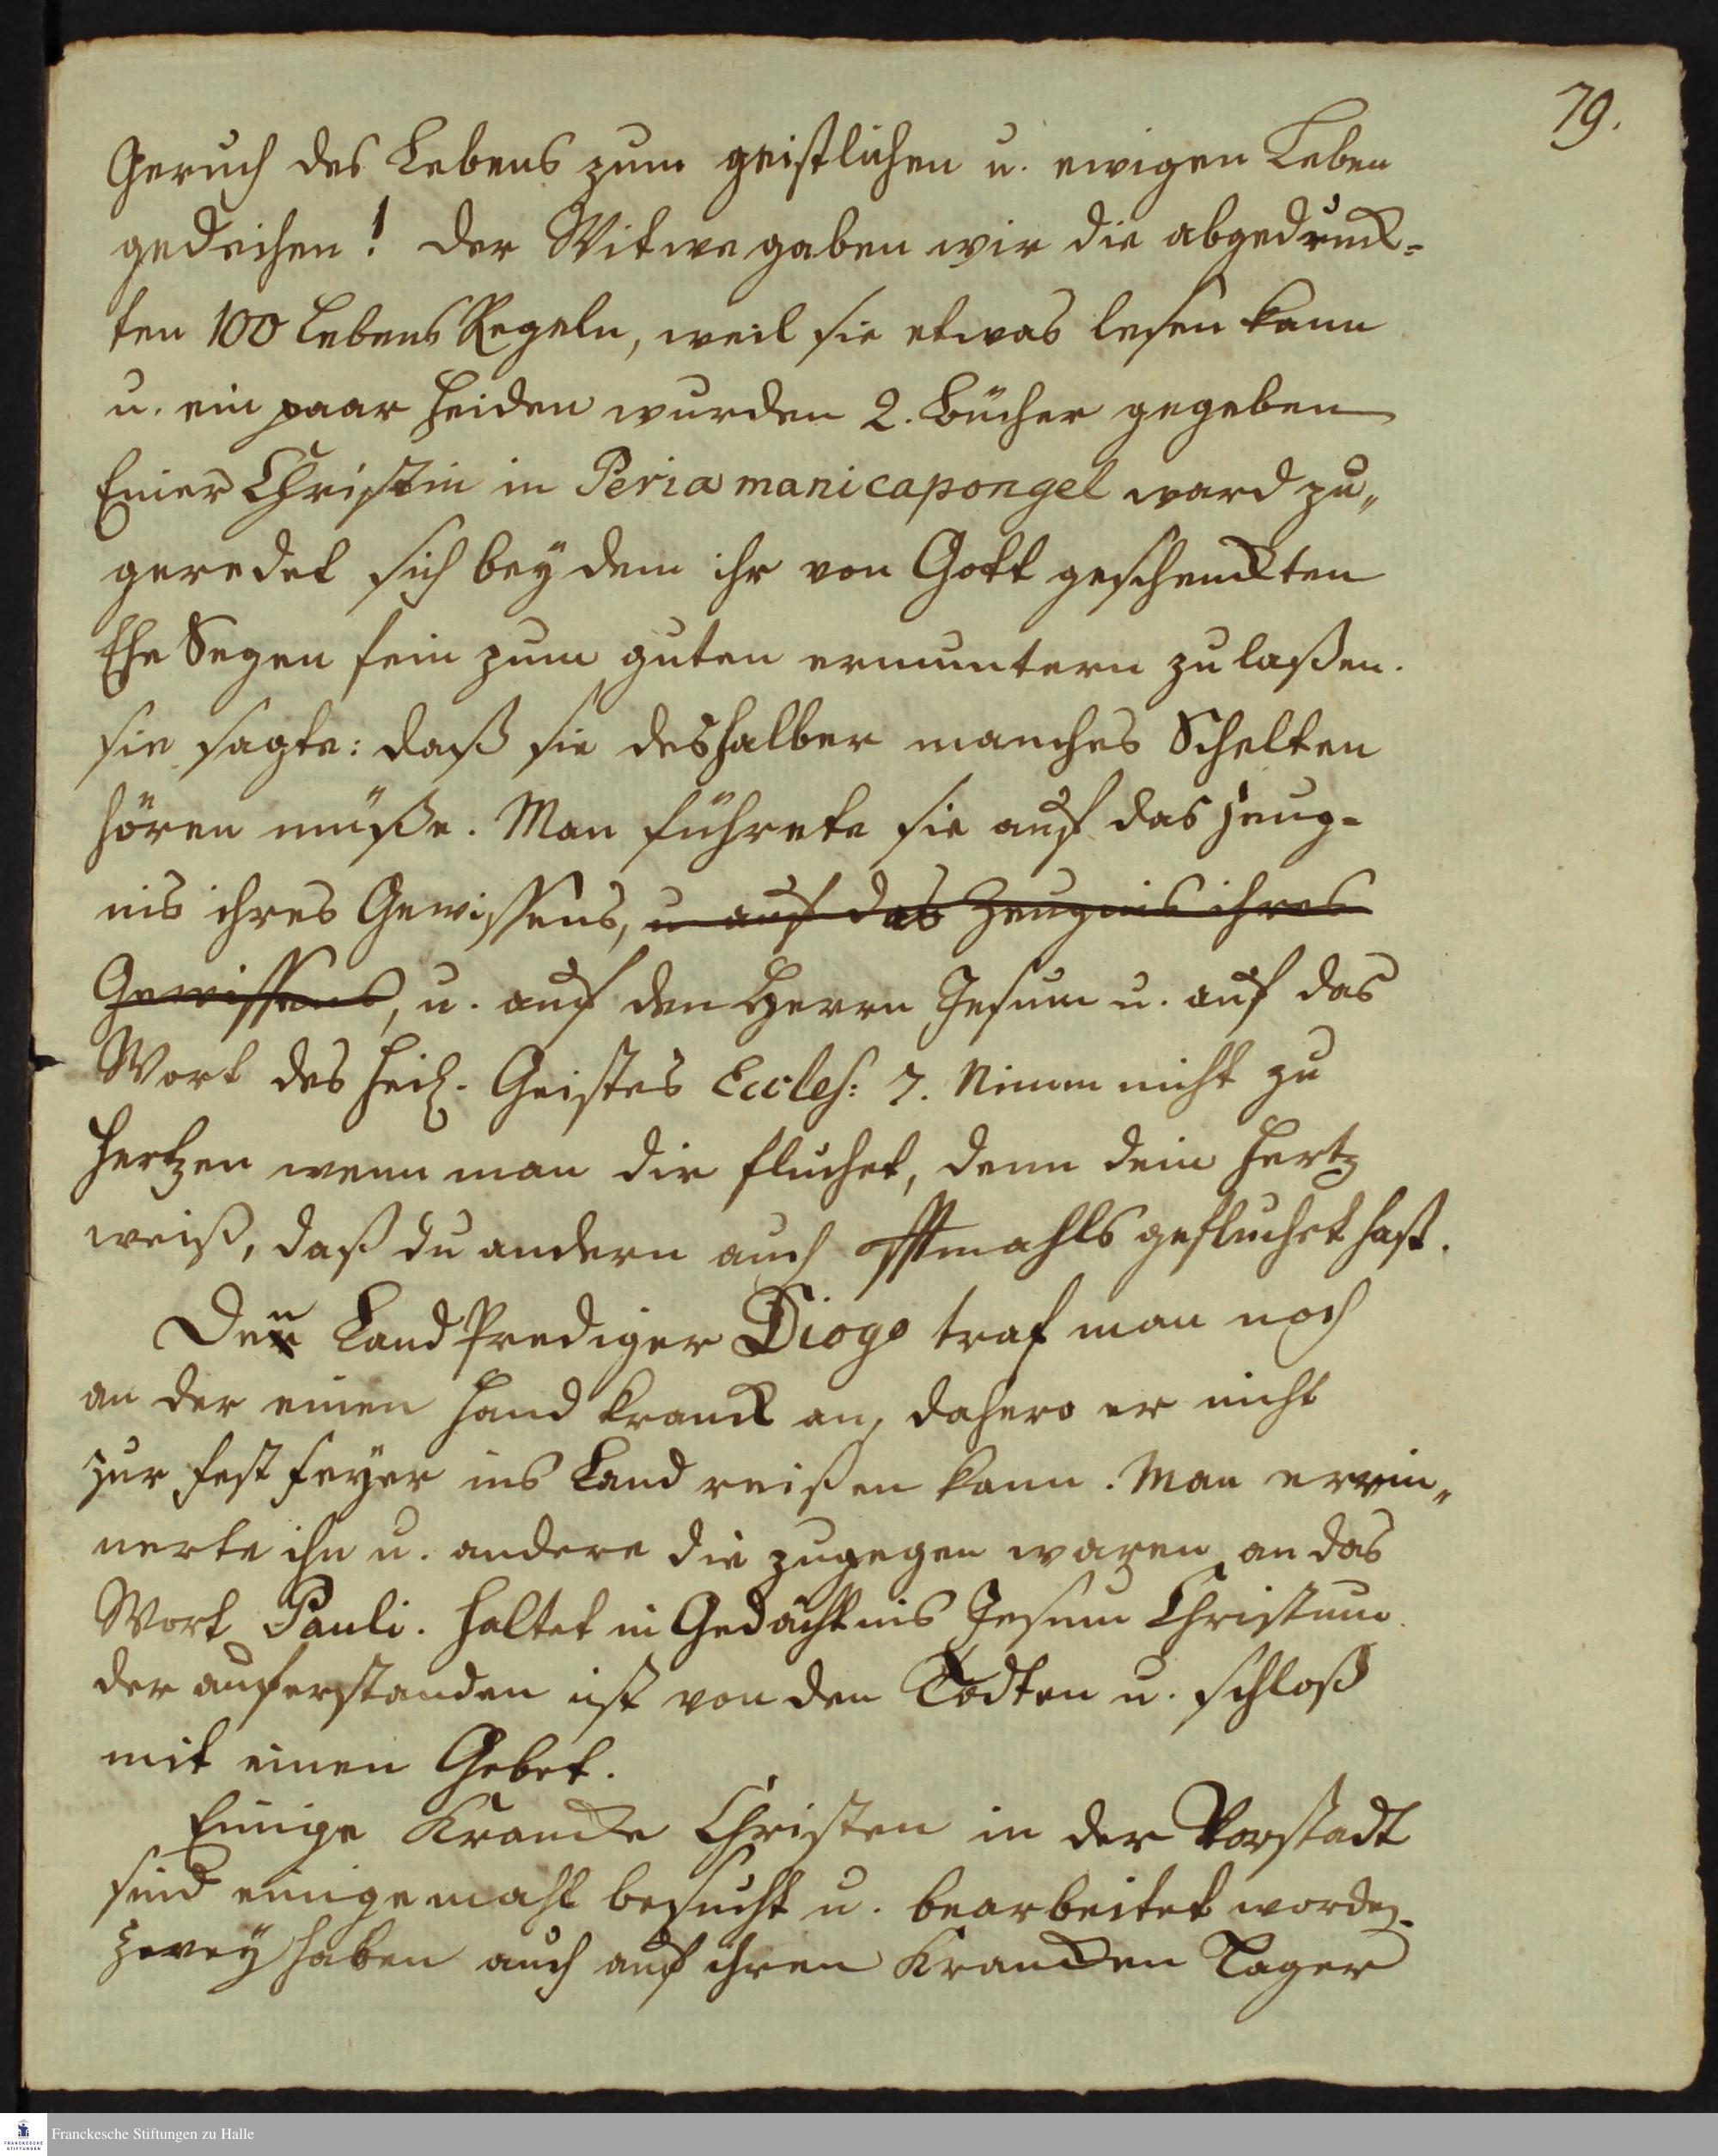 79.
Geruch des Lebens zum geistlichen u. ewigen Leben
gedeihen! Der Witwe gaben wir die abgedruck-
ten 100 Lebens Regeln, weil sie etwas lesen kann
u. ein paar Heiden wurden 2. Bücher gegeben
Einer Christin in Peria manicapongel ward zu„
geredet sich bey dem ihr von Gott geschenckten
Ehe Segen fein zum guten ermuntern zu laßen.
sie sagte: daß sie deshalber manches Schelten
hören müße. Man führete sie auf das Zeug-
nis ihres Gewissens, u auf das Zeugnis ihres
Gewissens, u. auf den Herrn Jesum u. auf das
Wort des Heil. Geistes Eccles: 7. Nimm nicht zu
Hertzen wenn man dir fluchet, denn dein Hertz
weiß, daß du andern auch offtmahls gefluchet hast.
Den Land Prediger Diogo traf man noch
an der einen Hand kranck an, dahero er nicht
zur Fest Feyer ins Land reißen kann. Man errin„
nerte ihn u. andere die zugegen waren an das
Wort Pauli. Haltet in Gedächtnis Jesum Christum
der auferstanden ist von den Todten u. schloß
mit einen Gebet.
Einige Krancke Christen in der Vorstadt
sind einigemahl besucht u. bearbeitet worden.
Zwey haben auch auf ihren Krancken Lager
Franckesche Stiftungen zu Halle
FRANCKESCHE
STIFTUNGEN